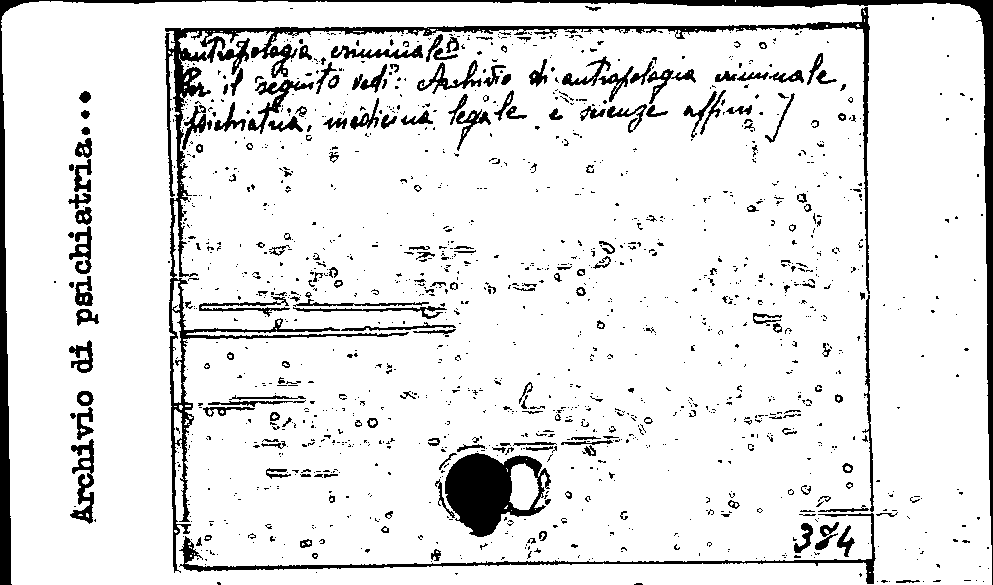 Archivio di psichiatria...
antropologia criminale?
Per il seguito vedi: Archivio di antropologia criminale,
psichiatria, medicina legale e scienze affini.]
384